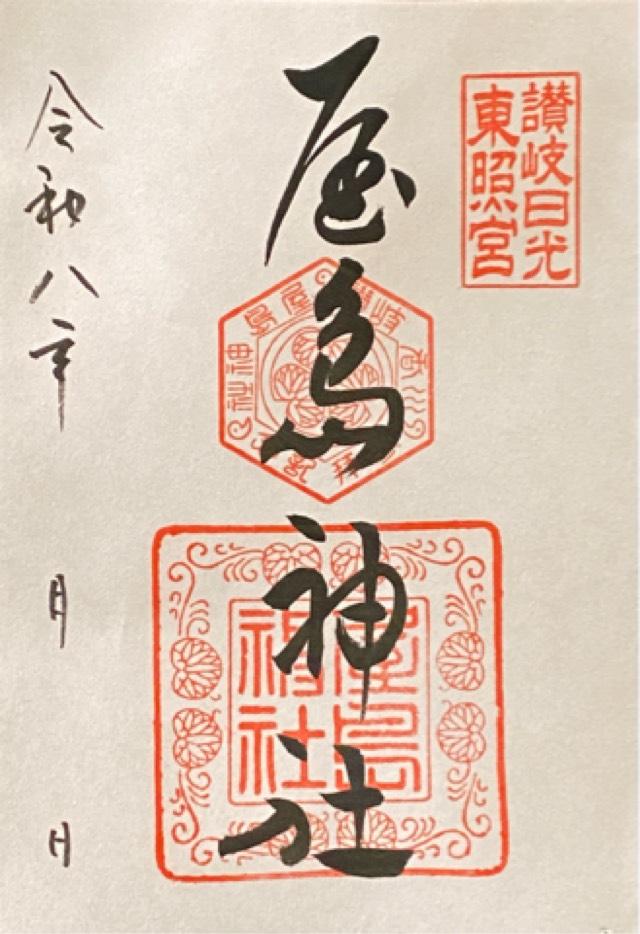 讃岐日光
東照宮
屋島神社
讃岐
屋島
神社
香川
屋島
神社
令和八年 月 日